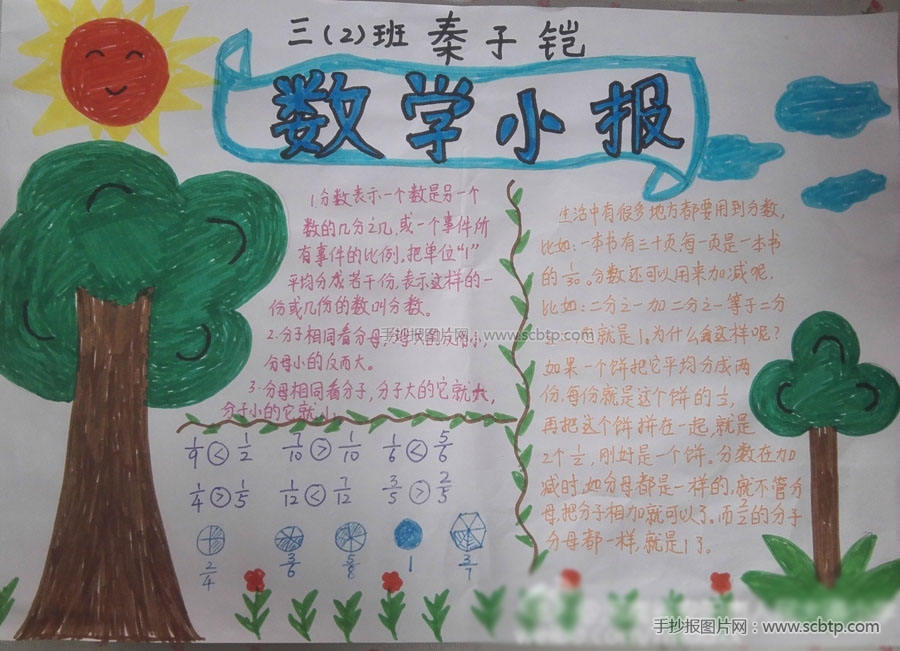 三(2)班 秦子铠
数学小报
1.分数表示一个数是另一个
数的几分之几,或一个事件所
有事件的比例,把单位“1”
平均分成若干份,表示这样的一
份或几份的数叫分数。
2.分子相同看分母,
分母小的反而大。
3.分母相同看分子,分子大的它就大,
分子小的它就小
1/9 < 1/2 7/10 > 1/10 1/6 < 5/6
1/4 > 1/5 1/12 < 7/12 3/5 > 2/5
2/4 3/6 5/8 1 3/7
生活中有很多地方都要用到分数,
比如:一本书有三十页,每一页是一本书
的1/30。分数还可以用来加减呢,
比如:二分之一加二分之一等于二分
就是1。为什么会这样呢?
如果一个饼把它平均分成两
份,每份就是这个饼的1/2,
再把这个饼拼在一起,就是
2个1/2,刚好是一个饼。分数在加
减时,如分母都是一样的,就不管分
母,把分子相加就可以了。而2/2的分子
分母都一样,就是1了。
手抄报图片网:www.scbtp.com
手抄报图片网:www.scbtp.com